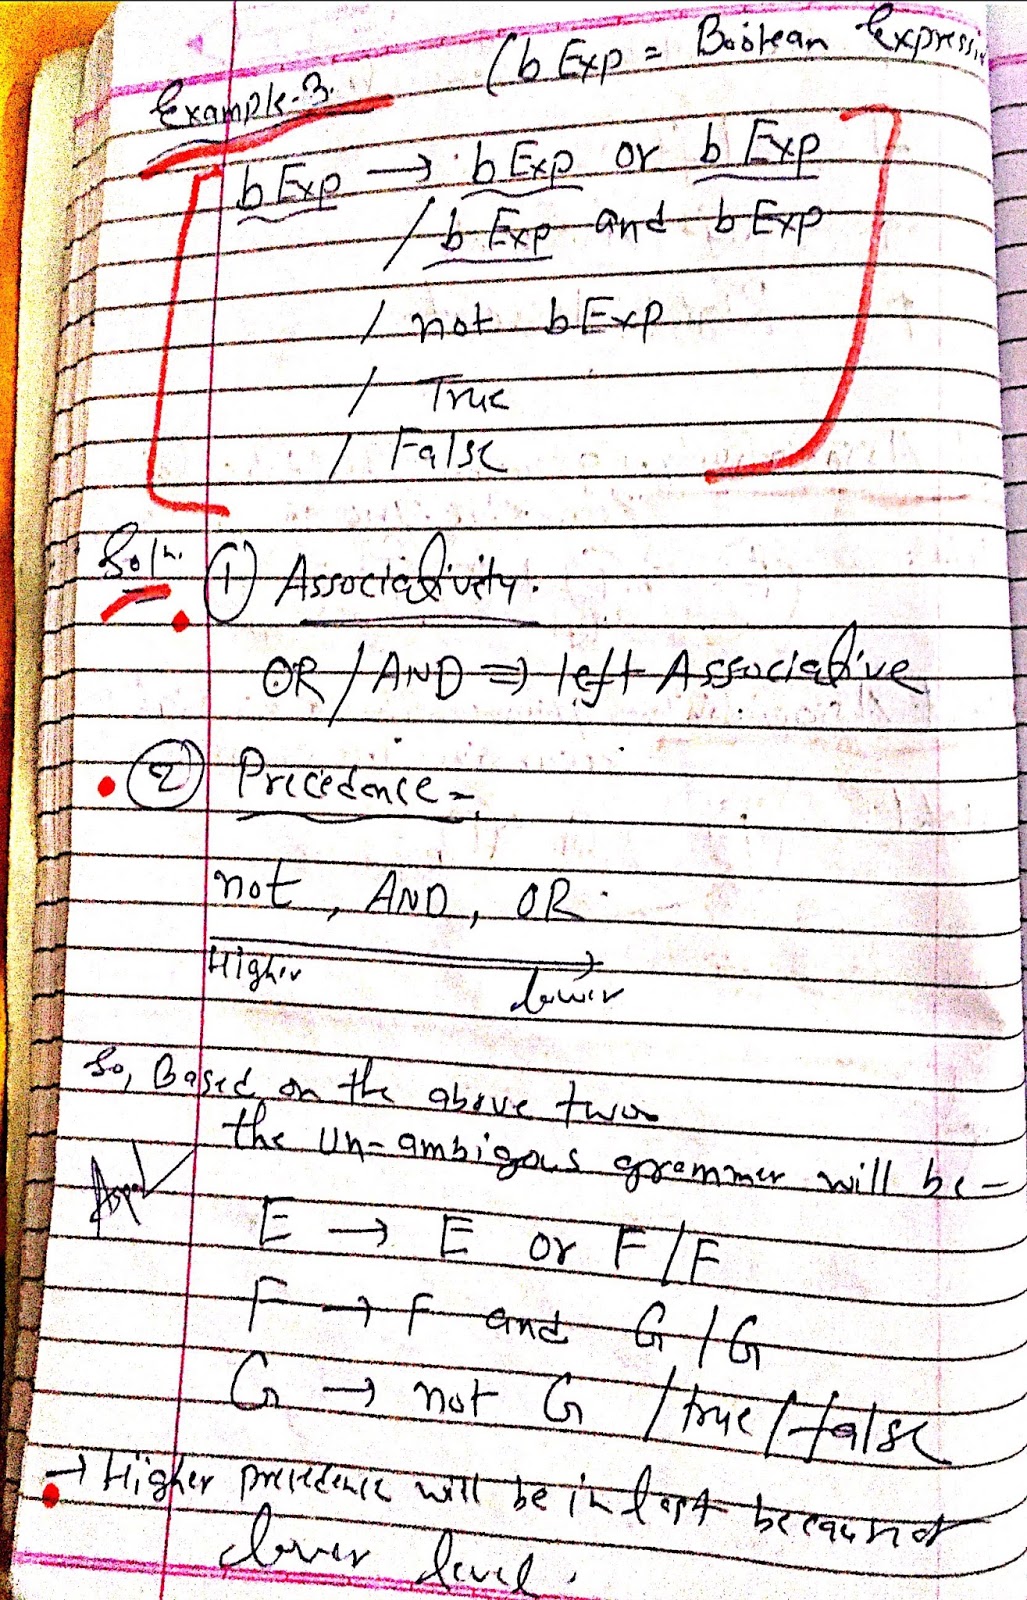 (b Exp = Boolean Expressi
Example-3.
b Exp → b Exp or b Exp
/ b Exp and b Exp
/ not b Exp
/ True
/ False
Soln. ① Associativity.
OR / AND ⇒ left Associative
② Precedence -
not, AND, OR.
Higher lower
So, Based on the above two
the un-ambigous grammer will be -
E → E or F / F
F → F and G / G
G → not G / true / false
→ Higher precedence will be in last because of
lower level.